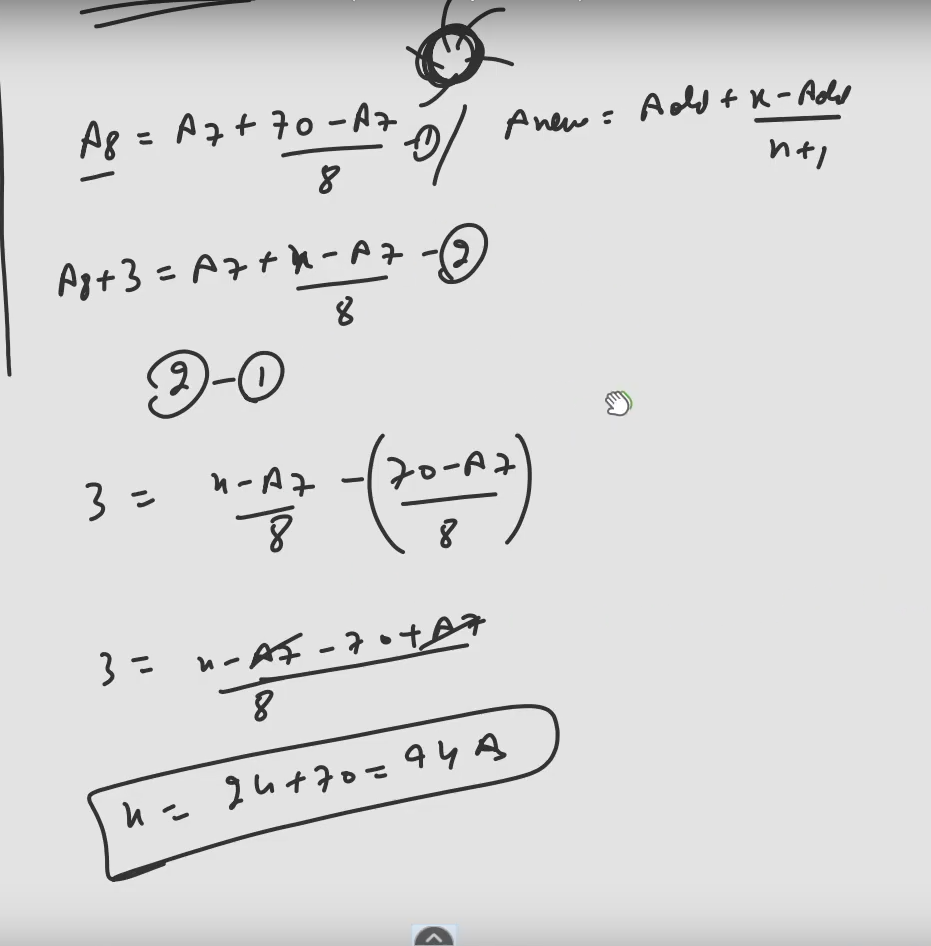 A8 = A7 + 70 - A7 / 8 - ①
Anew = Aold + x - Aold / n+1
A8+3 = A7 + x - A7 / 8 - ②
② - ①
3 = x - A7 / 8 - (70 - A7 / 8)
3 = x - A7 - 70 + A7 / 8
x = 24 + 70 = 94 A